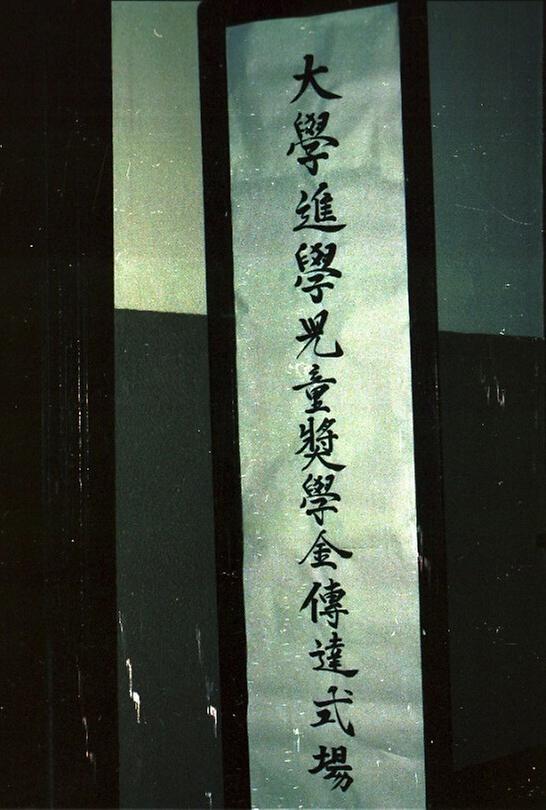 大學進學兒童獎學金傳達式場